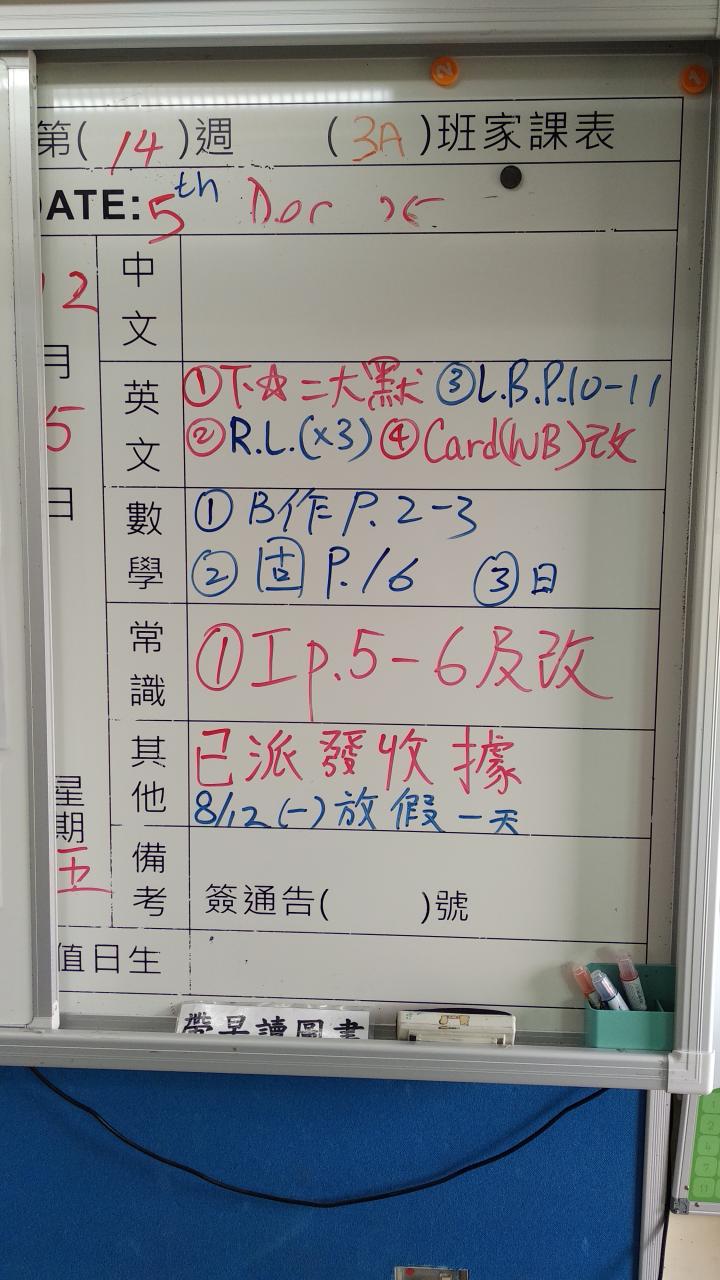 第(14)週 (3A)班家課表
DATE: 5th Dec 25
12月5日
星期五
中文
英文
①下☆二大默 ③L.B.P.10-11
②R.L.(x3) ④Card(WB)改
數學
①B作P.2-3
②固P.16 ③日
常識
①Ip.5-6及改
其他
已派發收據
8/12(一)放假一天
備考
簽通告( )號
值日生
帶早讀圖書